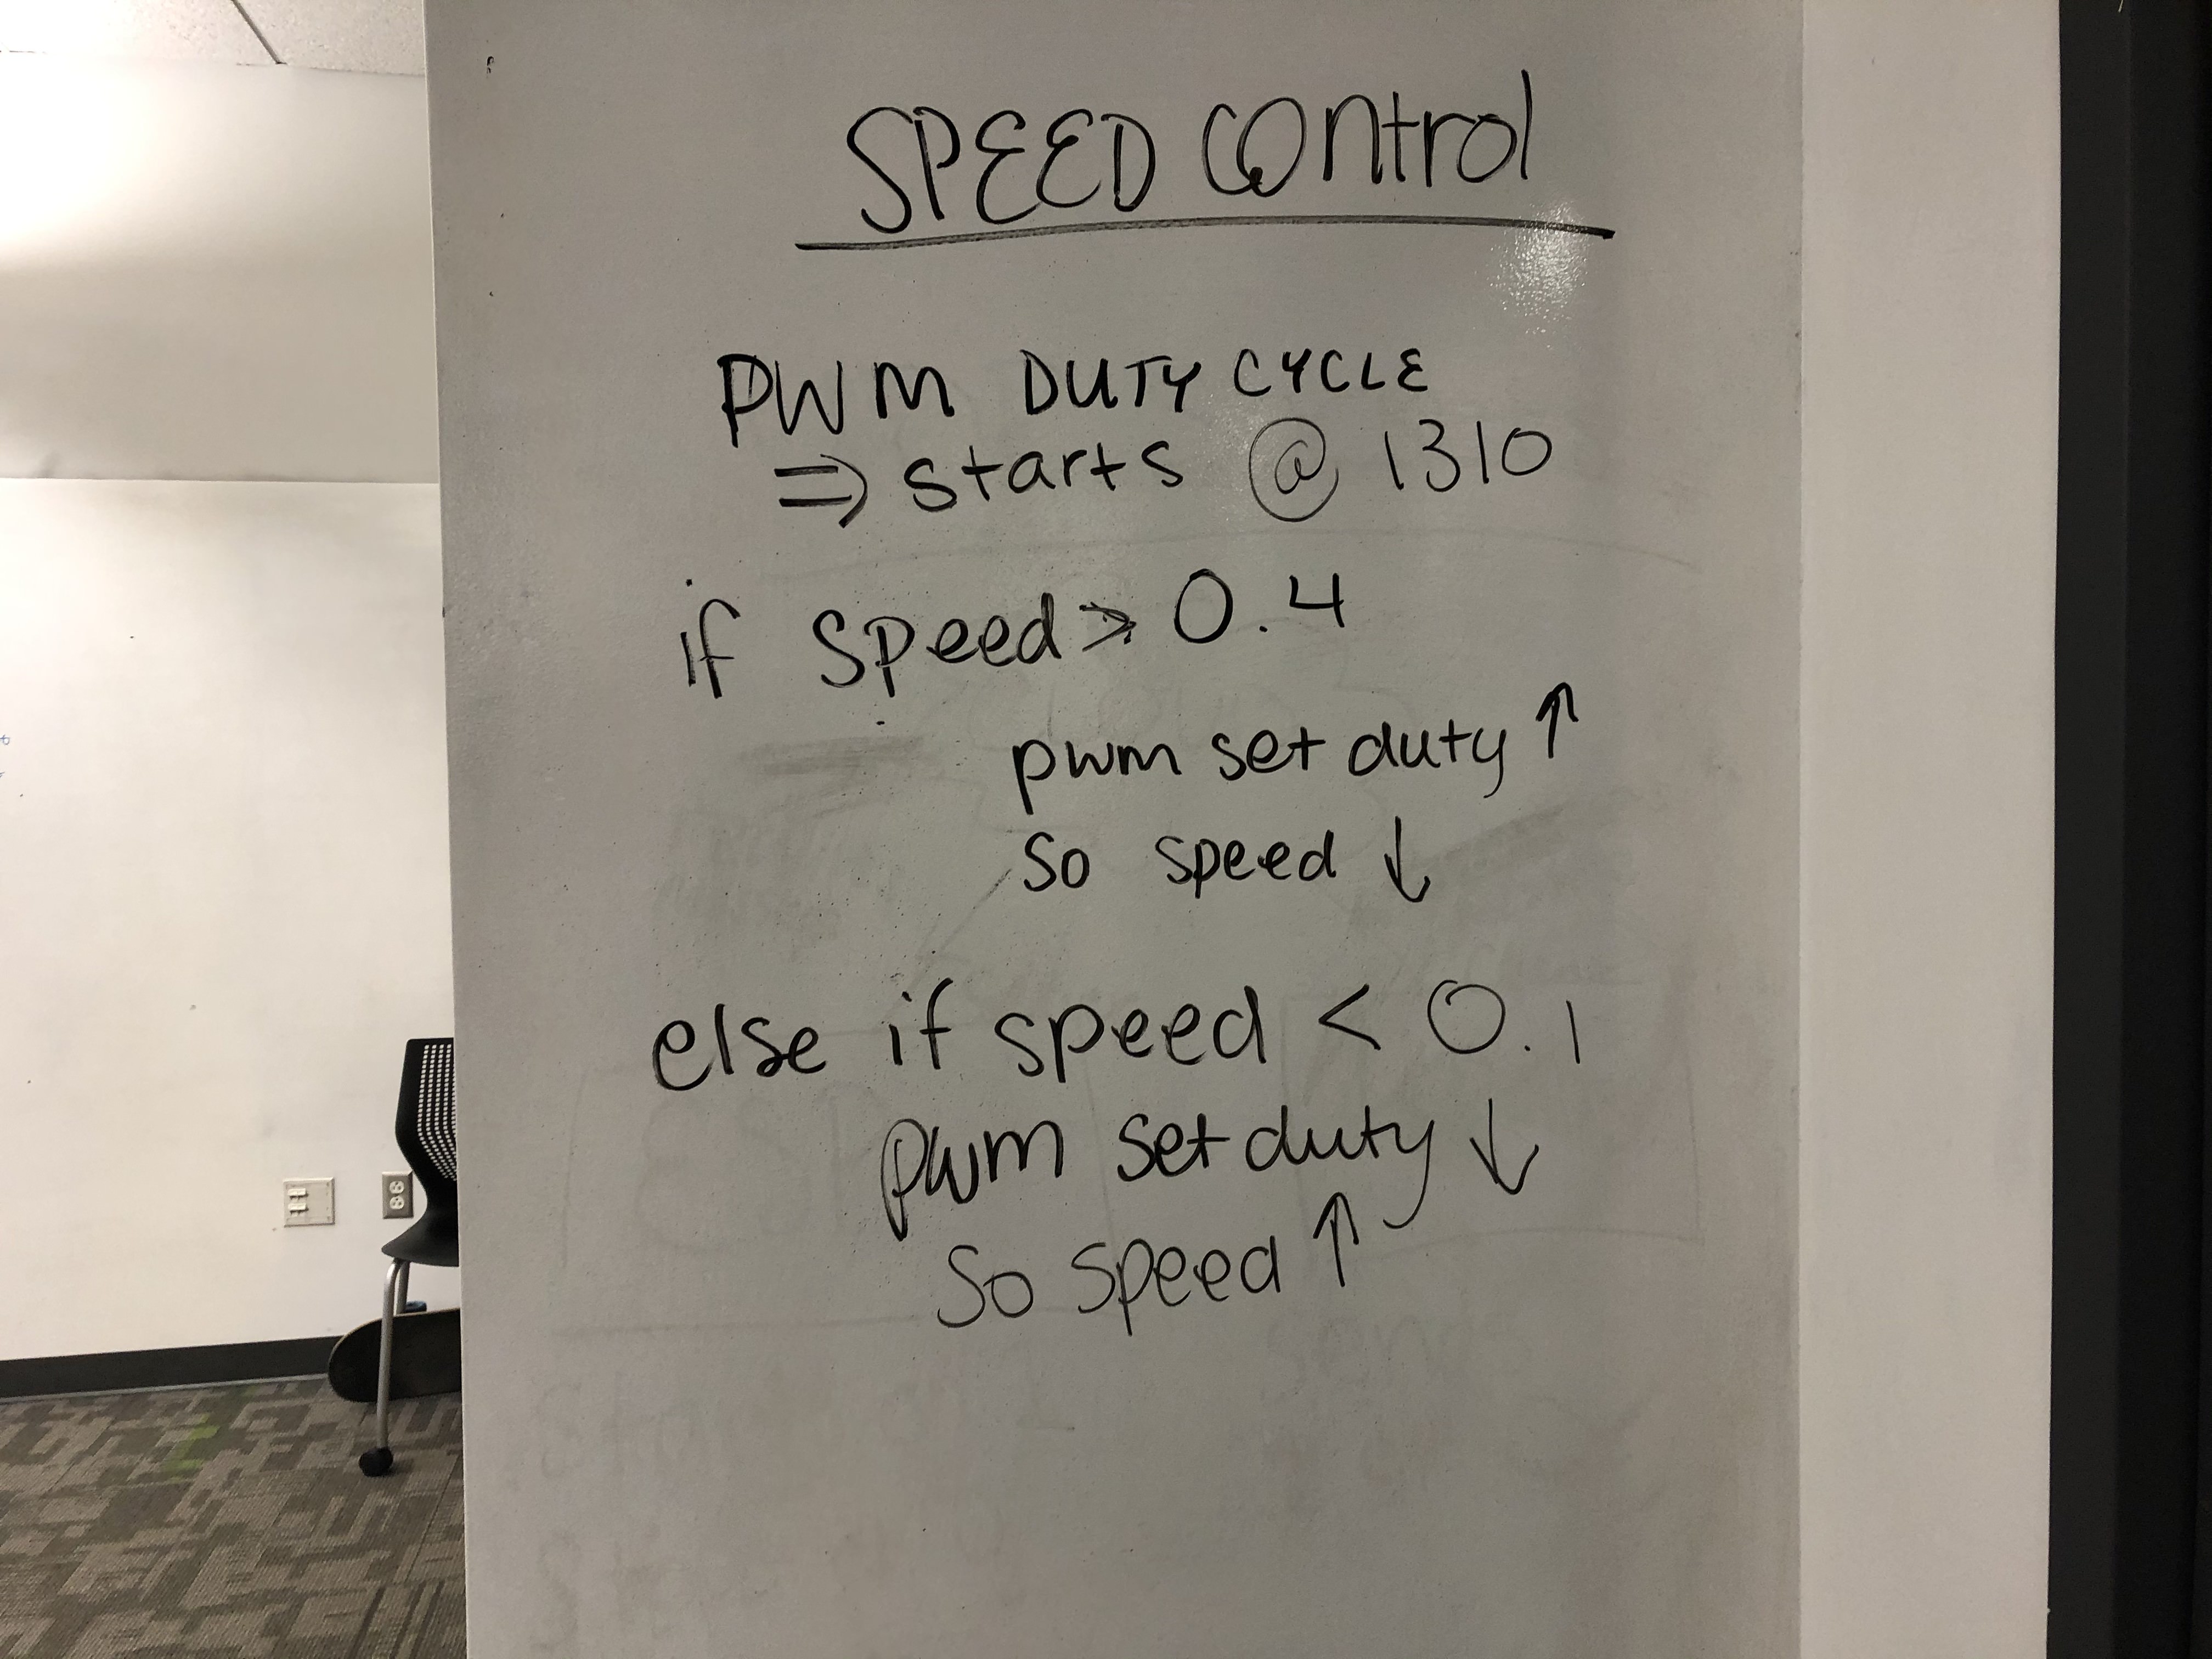 SPEED control
PWM DUTY CYCLE
⇒ starts @ 1310
if speed > 0.4
pwm set duty ↑
so speed ↓
else if speed < 0.1
pwm set duty ↓
So speed ↑